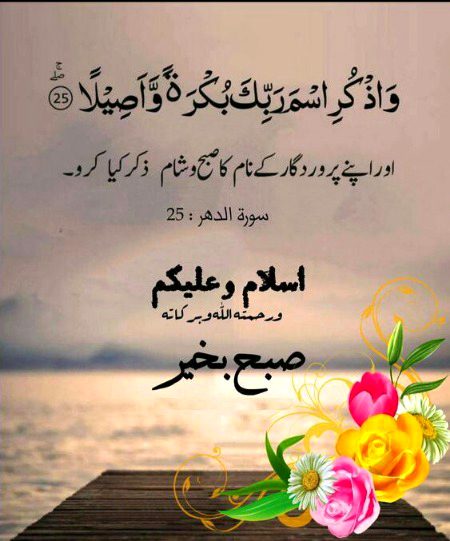 وَاذْكُرِ اسْمَ رَبِّكَ بُكْرَةً وَّاَصِيْلًا ۖۚ ﴿25﴾
اور اپنے پروردگار کے نام کا صبح و شام ذکر کیا کرو۔
سورة الدهر : 25
اسلام و علیکم
ورحمته الله وبركاته
صبح بخیر